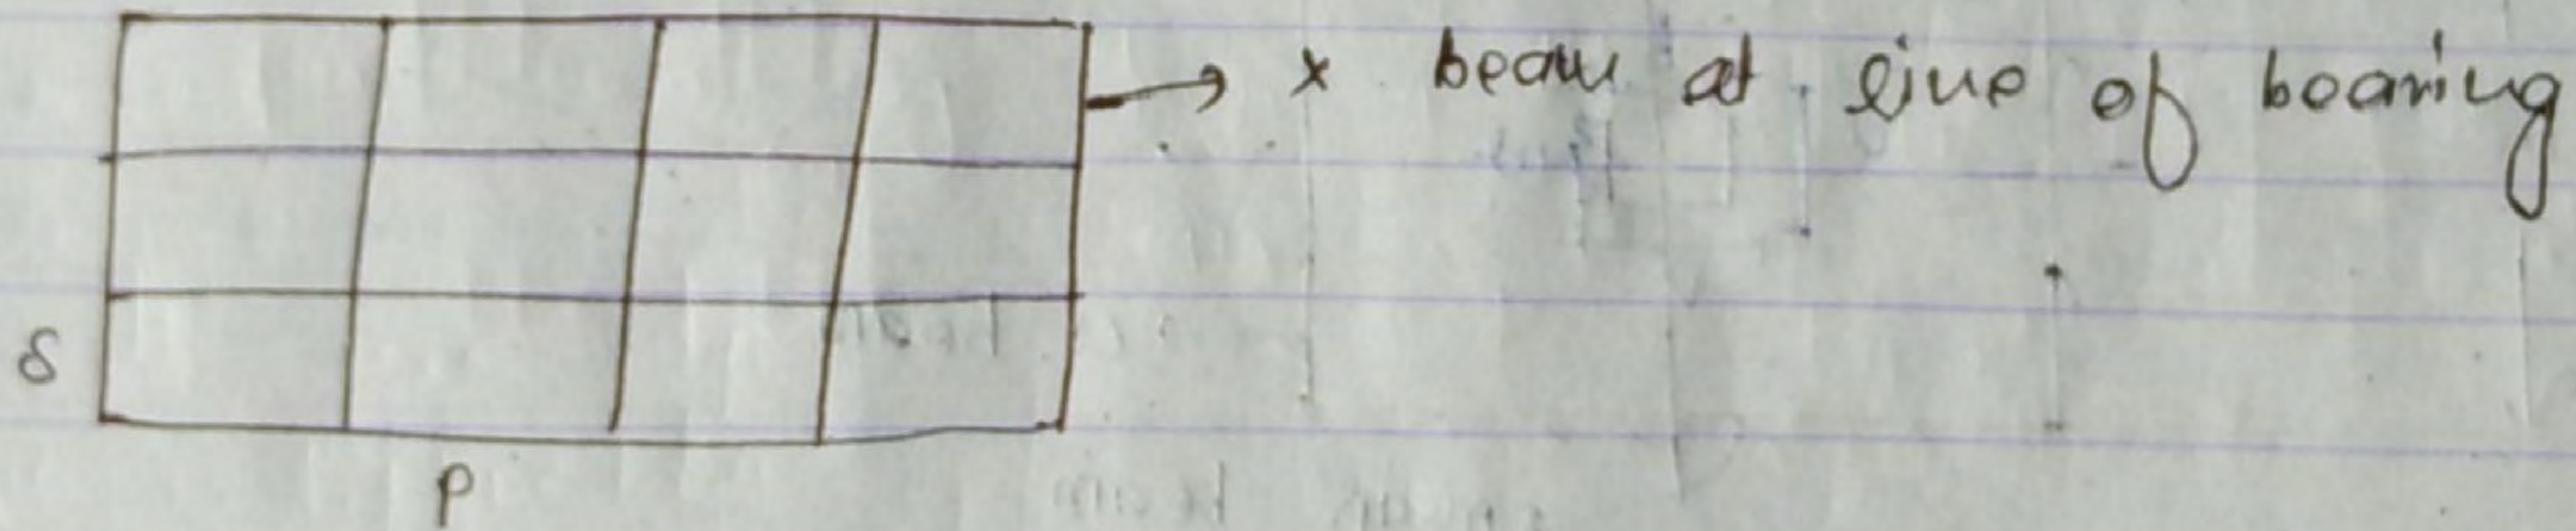 x beam at line of bearing
δ
P